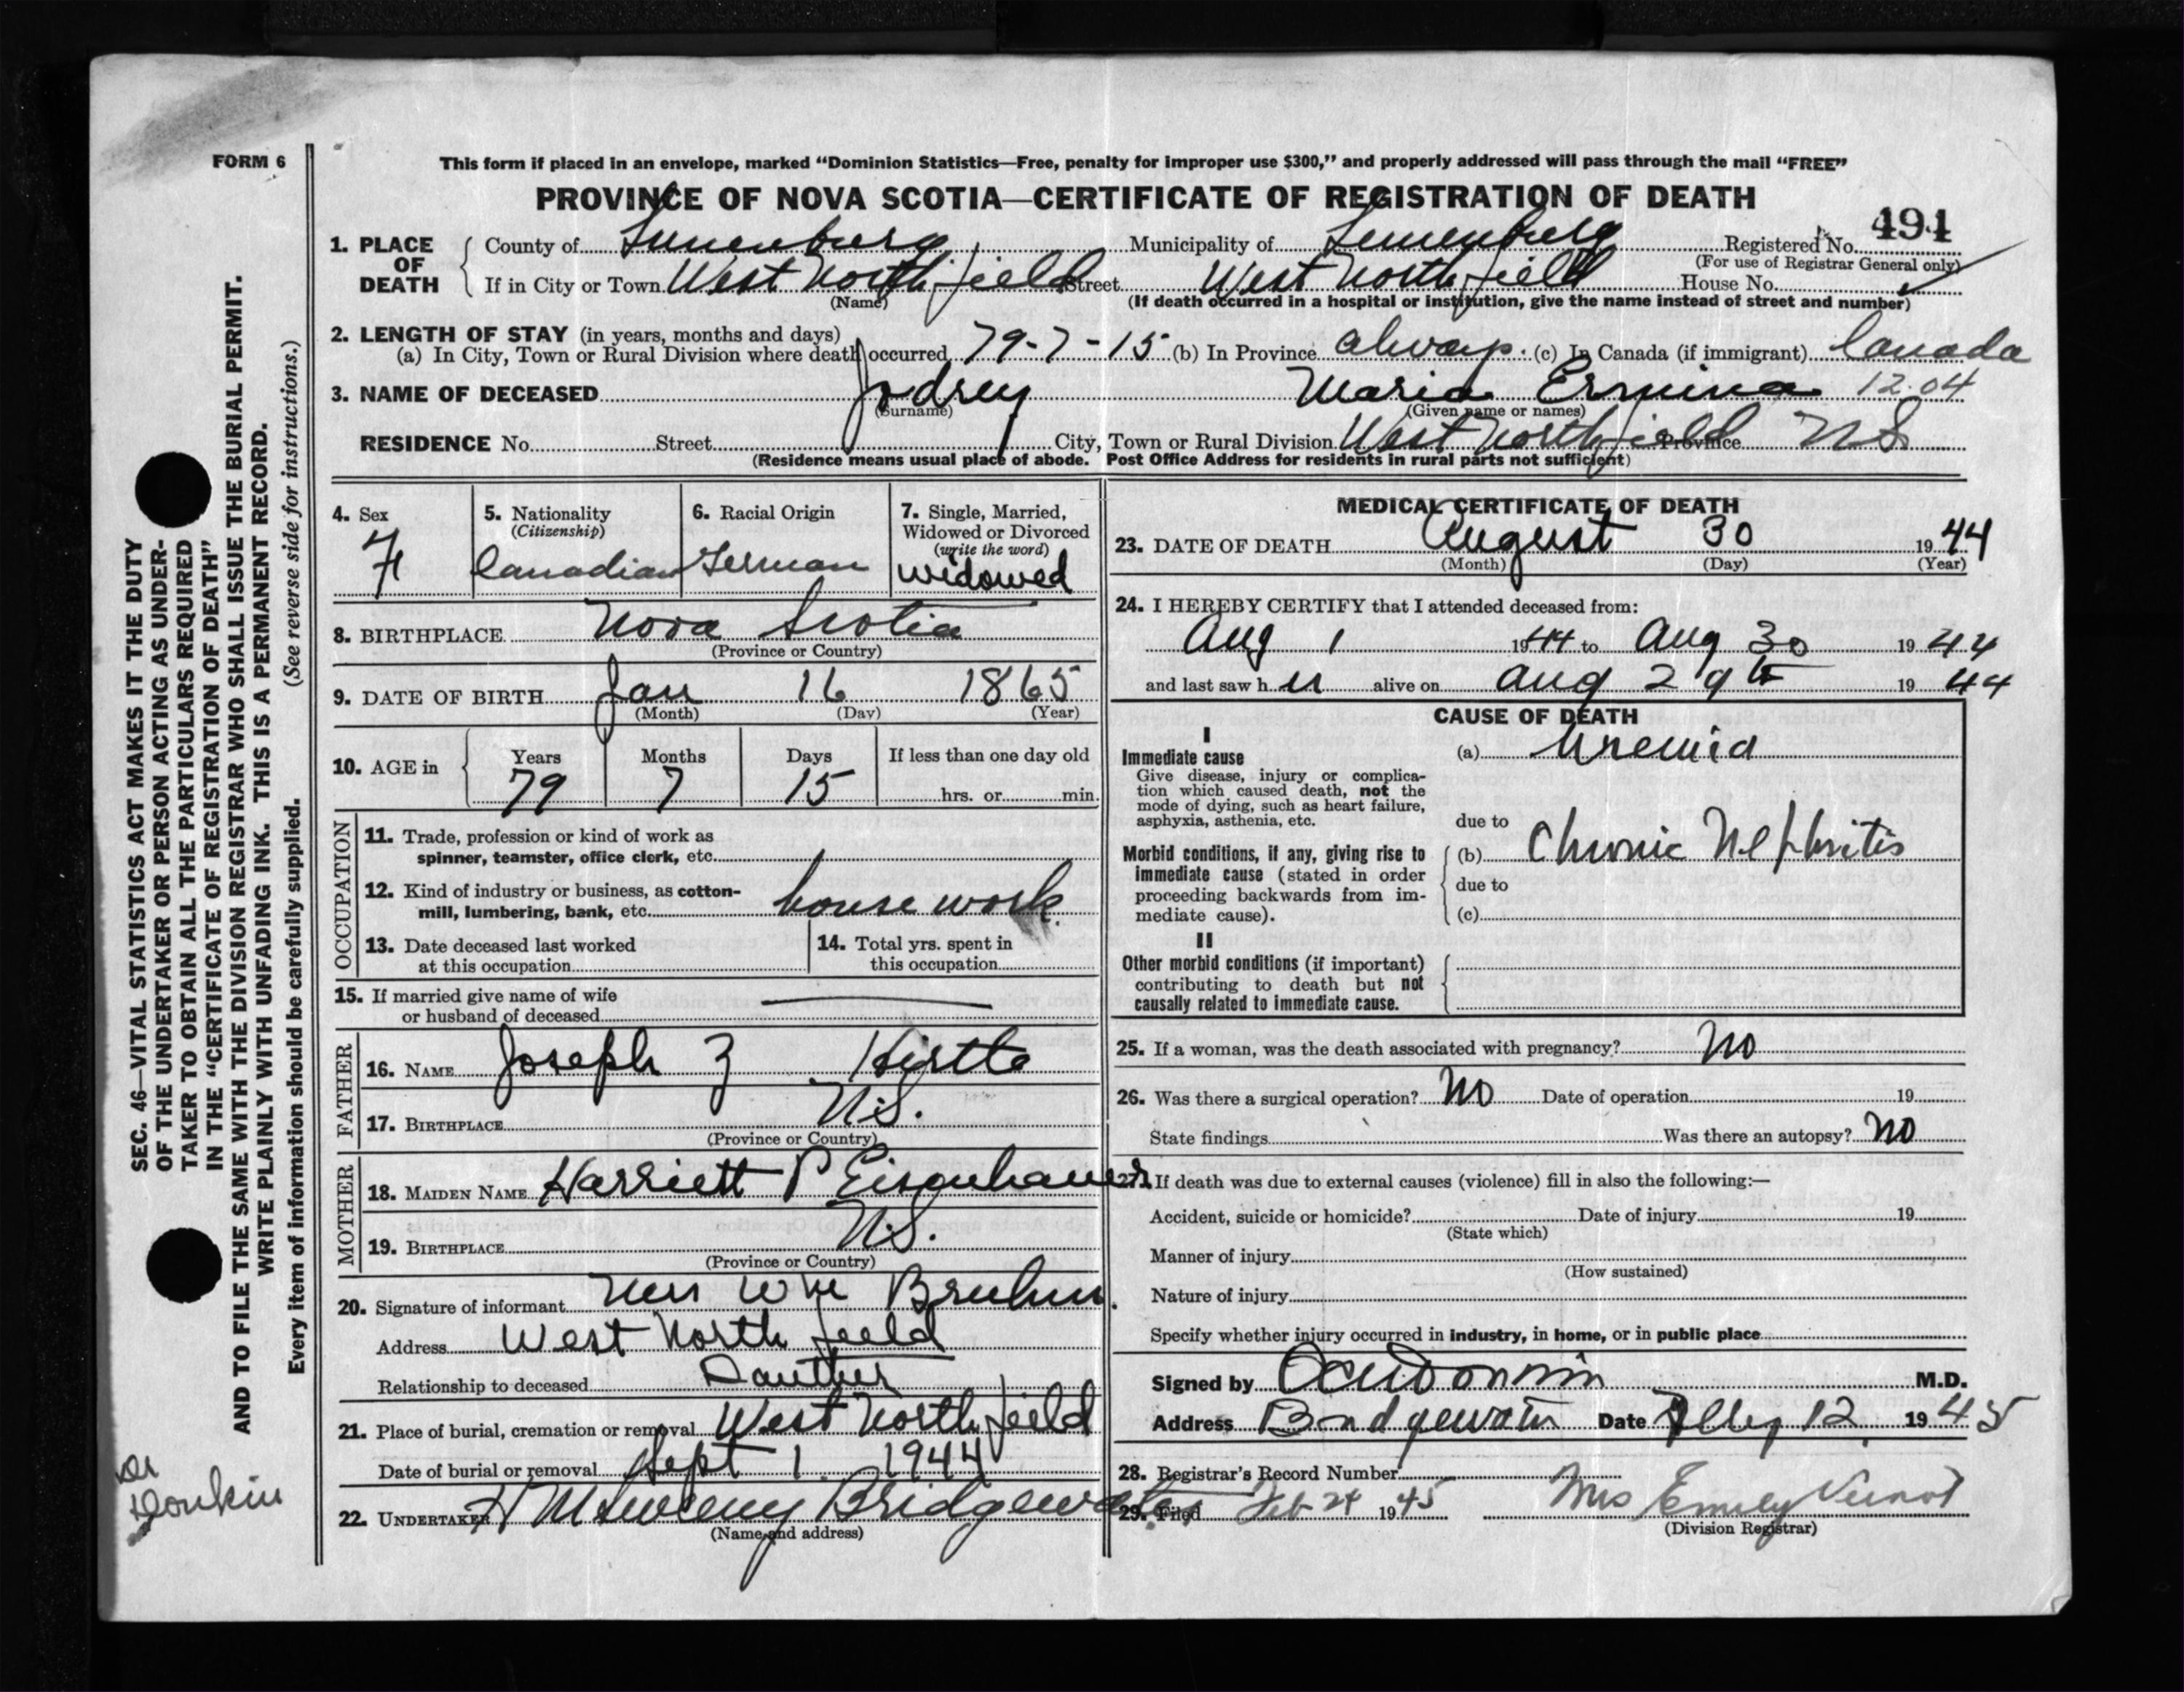 FORM 6
This form if placed in an envelope, marked “Dominion Statistics—Free, penalty for improper use $300,” and properly addressed will pass through the mail “FREE”
PROVINCE OF NOVA SCOTIA—CERTIFICATE OF REGISTRATION OF DEATH
494
1. PLACE OF DEATH County of Lunenburg Municipality of Lunenburg Registered No.
(For use of Registrar General only)
If in City or Town West Northfield Street West Northfield House No.
(Name) (If death occurred in a hospital or institution, give the name instead of street and number)
2. LENGTH OF STAY (in years, months and days)
(a) In City, Town or Rural Division where death occurred 79-7-15 (b) In Province always. (c) In Canada (if immigrant) Canada
3. NAME OF DECEASED Jodrey Maria Ermina 12.04
(Surname) (Given name or names)
RESIDENCE No. Street City, Town or Rural Division West Northfield Province NS
(Residence means usual place of abode. Post Office Address for residents in rural parts not sufficient)
4. Sex F
5. Nationality (Citizenship) Canadian
6. Racial Origin German
7. Single, Married, Widowed or Divorced (write the word) widowed
8. BIRTHPLACE Nova Scotia
(Province or Country)
9. DATE OF BIRTH Jan 16 1865
(Month) (Day) (Year)
10. AGE in Years 79 Months 7 Days 15 If less than one day old
hrs. or min.
OCCUPATION
11. Trade, profession or kind of work as
spinner, teamster, office clerk, etc.
12. Kind of industry or business, as cotton-
mill, lumbering, bank, etc. house work
13. Date deceased last worked
at this occupation
14. Total yrs. spent in
this occupation
15. If married give name of wife
or husband of deceased
FATHER
16. NAME Joseph Z Hirtle
17. BIRTHPLACE N.S.
(Province or Country)
MOTHER
18. MAIDEN NAME Harriett P Eisenhauer
19. BIRTHPLACE N.S.
(Province or Country)
20. Signature of informant Mrs Wm Bruhm.
Address West Northfield
Relationship to deceased Dauther
21. Place of burial, cremation or removal West Northfield
Date of burial or removal Sept 1. 1944
22. UNDERTAKER Bridgewater
(Name and address)
MEDICAL CERTIFICATE OF DEATH
23. DATE OF DEATH August 30 1944
(Month) (Day) (Year)
24. I HEREBY CERTIFY that I attended deceased from:
Aug 1 1944 to Aug 30 1944
and last saw her alive on Aug 29th 1944
CAUSE OF DEATH
I
Immediate cause (a) Uremia
Give disease, injury or complica-
tion which caused death, not the
mode of dying, such as heart failure,
asphyxia, asthenia, etc.
due to
Morbid conditions, if any, giving rise to (b) Chronic Nephritis
immediate cause (stated in order due to
proceeding backwards from im-
mediate cause). (c)
II
Other morbid conditions (if important)
contributing to death but not
causally related to immediate cause.
25. If a woman, was the death associated with pregnancy? No
26. Was there a surgical operation? No Date of operation 19
State findings Was there an autopsy? No
27. If death was due to external causes (violence) fill in also the following:—
Accident, suicide or homicide? Date of injury 19
(State which)
Manner of injury
(How sustained)
Nature of injury
Specify whether injury occurred in industry, in home, or in public place
Signed by M.D.
Address Bridgewater Date Feby 12 1945
28. Registrar's Record Number
29. Filed Feb 24 1945 Mrs Emily Veinot
(Division Registrar)
SEC. 46—VITAL STATISTICS ACT MAKES IT THE DUTY
OF THE UNDERTAKER OR PERSON ACTING AS UNDER-
TAKER TO OBTAIN ALL THE PARTICULARS REQUIRED
IN THE “CERTIFICATE OF REGISTRATION OF DEATH”
AND TO FILE THE SAME WITH THE DIVISION REGISTRAR WHO SHALL ISSUE THE BURIAL PERMIT.
WRITE PLAINLY WITH UNFADING INK. THIS IS A PERMANENT RECORD.
Every item of information should be carefully supplied. (See reverse side for instructions.)
Dr
Donkin